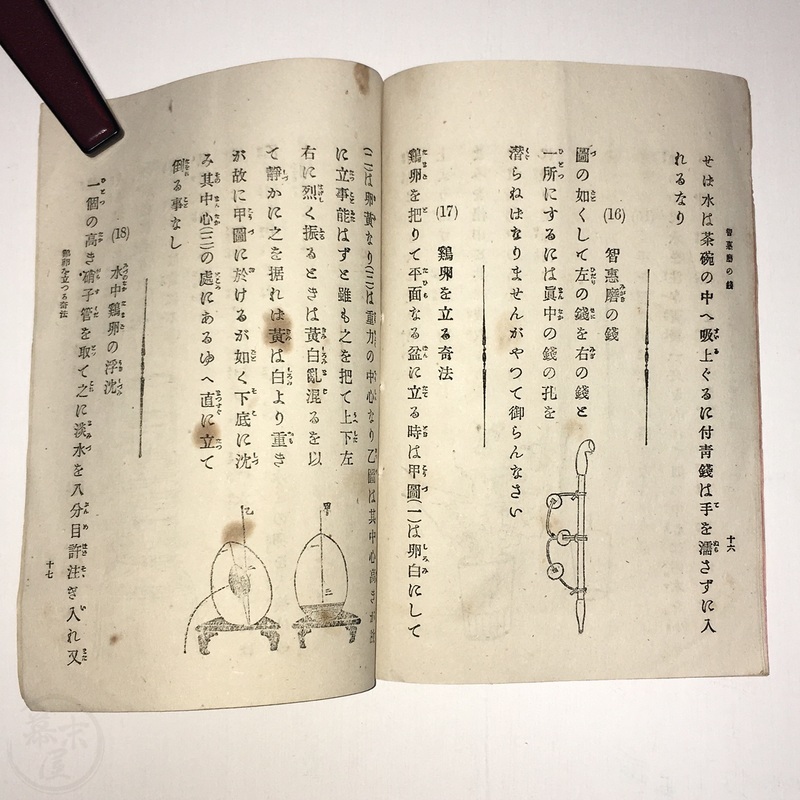 智惠磨の錢
十六
せは水は茶碗の中へ吸上ぐるに付靑錢は手を濡さずに入
れるなり
(16) 智惠磨の錢
圖の如くして左の錢を右の錢と
一所にするには眞中の錢の孔を
潜らねはなりませんがやつて御らんなさい
(17) 鶏卵を立る奇法
鶏卵を把りて平面なる盆に立る時は甲圖(一)は卵白にして
(二)は卵黄なり(三)は重力の中心なり乙圖は其中心高きが故
に立事能はずと雖も之を把て上下左
右に烈く振るときは黄白亂混るを以
て靜かに之を据れは黄は白より重き
が故に甲圖に於けるが如く下底に沈
み其中心(三)の處にあるゆへ直に立て
倒る事なし
甲
乙
(18) 水中鶏卵の浮沈
一個の高き硝子管を取て之に淡水を八分目許注ぎ入れ又
鶏卵を立つる奇法
十七
幕末屋